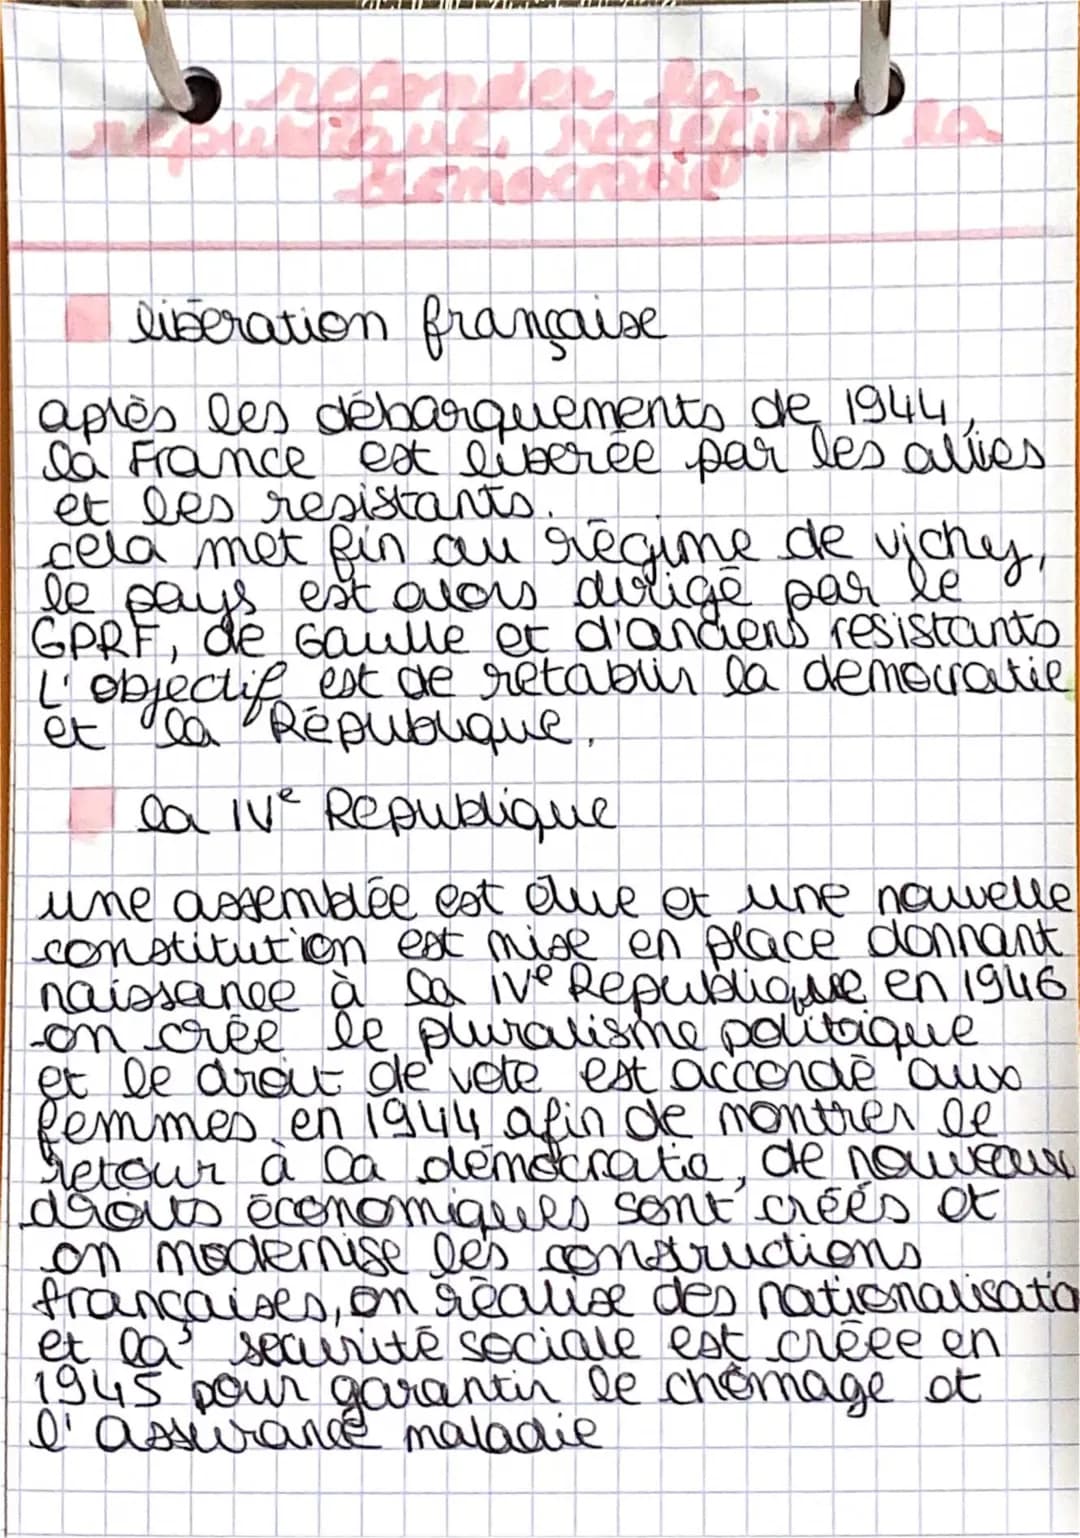 refonder la
république, redéfinir la
démocratie
libération française
après les débarquements de 1944,
la France est libérée par les alliés
et les resistants.
cela met fin au régime de vichy,
le pays est alors dirigé par le
GPRF, de Gaulle et d'anciens resistants
L'objectif est de retablir la democratie
et la République.
la IVe Republique
une assemblée est élue et une nouvelle
constitution est mise en place donnant
naissance à la IVe Republique en 1946
on crée le pluralisme politique
et le droit de vote est accordé aux
femmes en 1944 afin de montrer le
retour à la démocratie, de nouveaux
droits économiques sont créés et
on modernise les constructions
françaises, on réalise des nationalisatio
et la sécurité sociale est créee en
1945 pour garantir le chômage et
l'assurance maladie